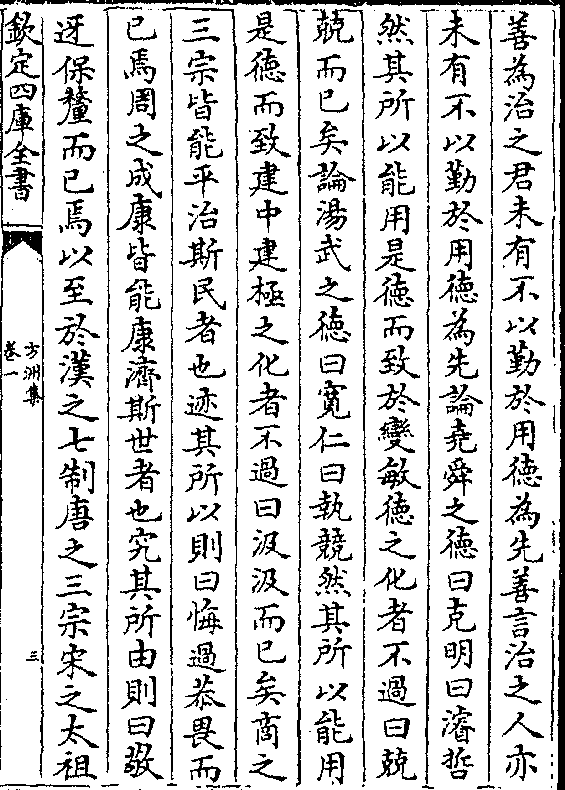 善為治之君未有不以勤於用德為先善言治之人亦
未有不以勤於用德為先論堯舜之德曰克明曰濬哲
然其所以能用是德而致於變敏德之化者不過曰兢
兢而已矣論湯武之德曰寛仁曰執競然其所以能用
是德而致建中建極之化者不過曰汲汲而已矣商之
三宗皆能平治斯民者也迹其所以則曰悔過恭畏而
已焉周之成康皆能康濟斯世者也究其所由則曰敬
迓保釐而已焉以至於漢之七制唐之三宗宋之太祖
欽定四庫全書
方洲集
卷一
三